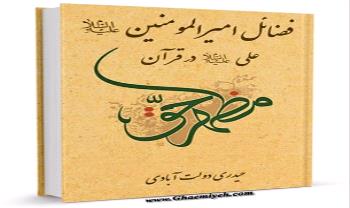 فضائل امیرالمومنین علیه السلام
علی علیه السلام در قرآن
مظهر حق
حیدری دولت آبادی
www.Ghaemiyeh.com